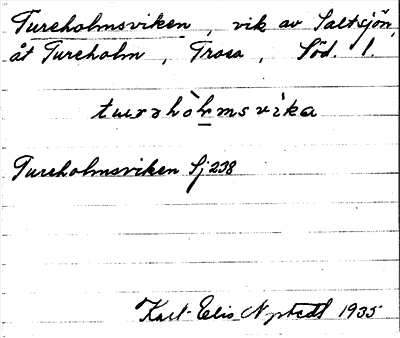 Tureholmsviken, vik av Saltsjön,
åt Tureholm, Trosa, Söd. l.
turrhòlmsvìka
Tureholmsviken Sj 238
Karl-Elis Nystedt 1935